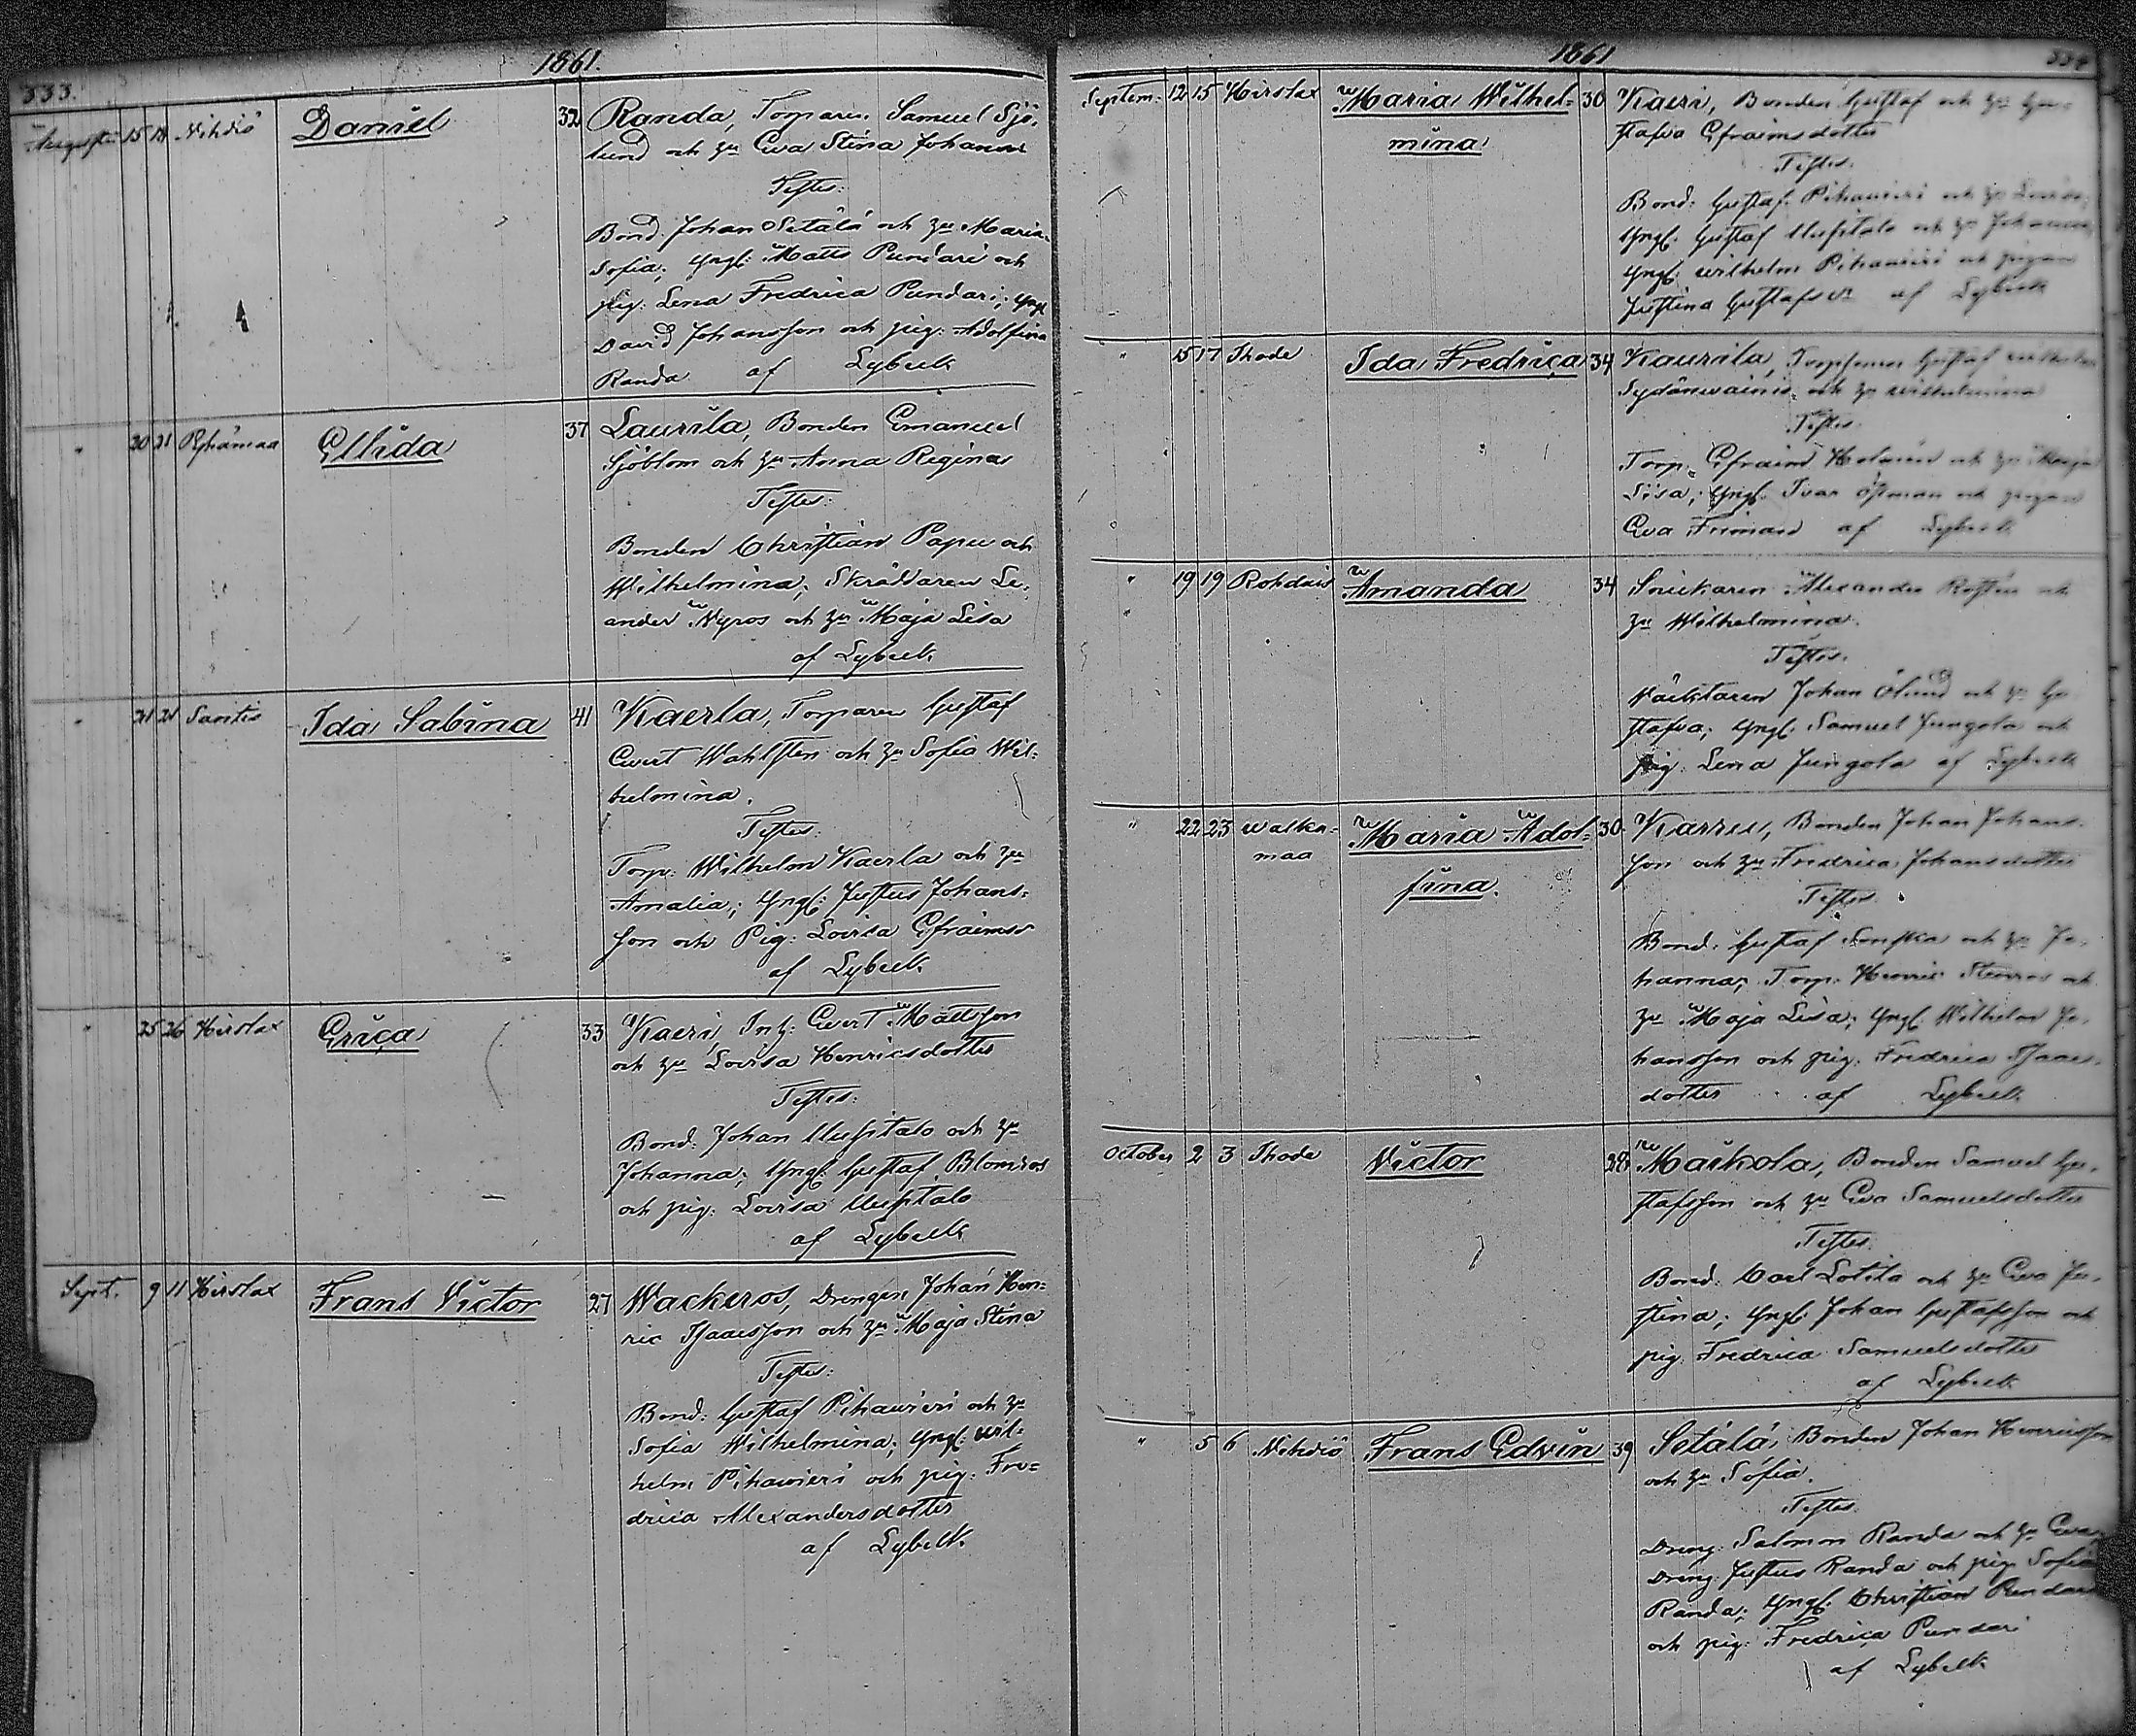 1861.
333.
Augusti 15 18 Nihdiö Daniel 32 Randa, Torparen Samuel Sjö-
lund och hu Eva Stina Johans
Testes:
Bond. Johan Setälä och hu Maria
Sofia; Yngl: Matts Pundari och
pig: Lena Fredrica Pundari; Yngl
David Johansson och pig: Adolfina
Randa af Lybeck
" 20 21 Ellida 37 Laurila, Bonden Emanuel
Sjöblom och hu Anna Regina
Testes:
Bonden Christian Papu och
Wilhelmina; Skräddaren Le-
ander Nyros och hu Maja Lisa
af Lybeck.
" 21 21 Santio Ida Sabina 41 Kaerla, Torparen Gustaf
Evert Wahlsten och hu Sofia Wil-
helmina.
Testes:
Torp: Wilhelm Kaerla och hu
Amalia; Yngl: Justus Johans-
son och Pig: Lovisa Efraims
af Lybeck.
" 25 26 Hirslax Erica 33 Kaeri, Inh: Evert Mattsson
och hu Lovisa Henricsdotter
Testes:
Bond: Johan Uusitalo och hu
Johanna; Yngl: Gustaf Blomros
och pig: Lovisa Uusitalo
af Lybeck
Sept. 9 11 Hirslax Frans Victor 27 Wackeros, Drengen Johan Hen-
ric Isaacsson och hu Maja Stina
Testes:
Bond: Gustaf Pihawieri och hu
Sofia Wilhelmina; Yngl: Wil-
helm Pihawieri och pig: Fre-
drica Alexandersdotter
af Lybeck.
1861
334
Septem: 12 15 Hirslax Maria Wilhel- 30 Kaeri, Bonden Gustaf och hu Gu-
mina stafva Efraimsdotter
Testes:
Bond: Gustaf Pihawieri och hu Lovisa;
Yngl: Gustaf Uusitalo och hu Johanna,
Yngl: Wilhelm Pihawieri och pigan
Justina Gustafsdr af Lybeck
" 15 17 Ihode Ida Fredrica 34 Kaurila, Gustaf Wilhelm
och hu Wilhelmina
Testes:
Torp. Efraim och hu Maja
Lisa; Yngl: Ivar Östman och pigan
Eva Friman af Lybeck
" 19 19 Rohdais Amanda 34 Snickaren Alexander och
hu Wilhelmina.
Testes:
Johan Ölund och hu Gu-
stafva; Yngl: Samuel Jungola och
pig: Lena Jungola af Lybeck
" 22 23 Walka- Maria Adol- 30 Karru, Bonden Johan Johans-
maa fina. son och hu Fredrica Johansdotter
Testes:
Bond: Gustaf och hu Jo-
hanna; Torp. Henric Stenros och
hu Maja Lisa; Yngl: Wilhelm Jo-
hansson och pig: Fredrica Isaacs-
dotter af Lybeck.
October 2 3 Ihode Victor 28 Maikola, Bonden Samuel Gu-
stafsson och hu Eva Samuelsdotter
Testes:
Bond: Carl Lotila och hu Eva Ju-
stina; Yngl: Johan Gustafsson och
pig: Fredrica Samuelsdotter
af Lybeck
" 5 6 Nihdiö Frans Edvin 39 Setälä, Bonden Johan Henricsson
och hu Sofia.
Testes:
Dreng: Salomon Randa och hu Eva;
Dreng: Justus Randa och pig: Sofia
Randa; Yngl: Christian Pundari
och pig: Fredrica Pundari
af Lybeck